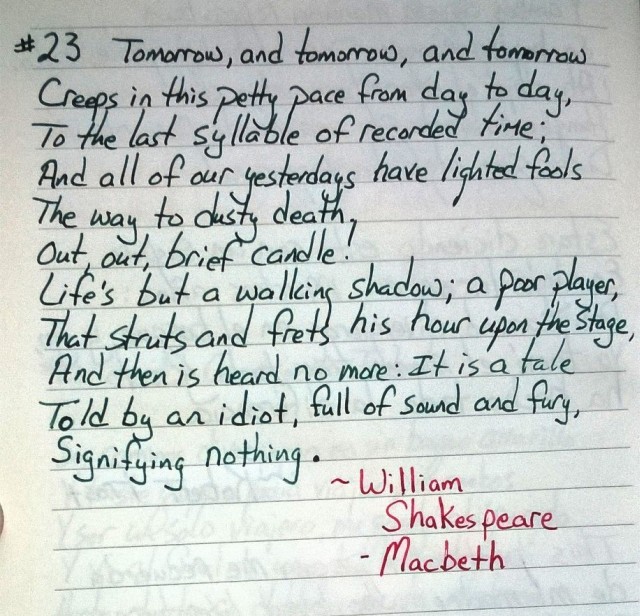 #23 Tomorrow, and tomorrow, and tomorrow
Creeps in this petty pace from day to day,
To the last syllable of recorded time;
And all of our yesterdays have lighted fools
The way to dusty death,
Out, out, brief candle!
Life's but a walking shadow; a poor player,
That struts and frets his hour upon the stage,
And then is heard no more: It is a tale
Told by an idiot, full of sound and fury,
Signifying nothing.
~ William
Shakespeare
- Macbeth